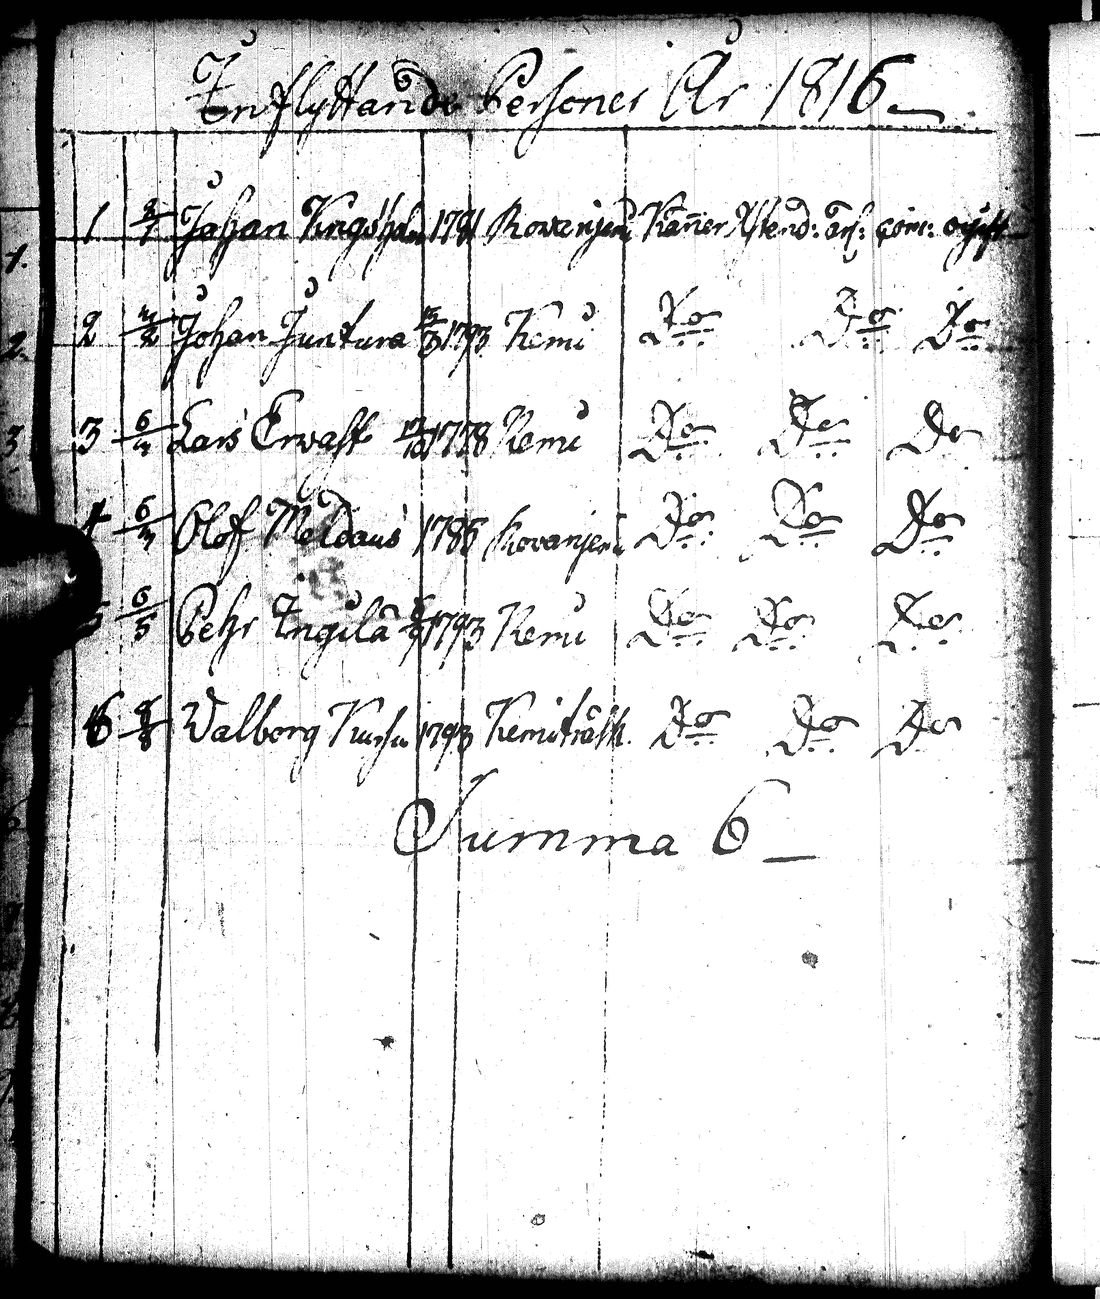 Inflyttande Personer År 1816.
1 Johan Kingsholm 1791 Rovanjemi Känner Xstend: ärl: com: ogift
2 Johan Juntura 1793 Kemi Do Do Do
3 6/3 Lars Erwast 1778 Kemi Do Do Do
4 6/3 Olof Meldaus 1785 Rovanjemi Do Do Do
5 6/5 Pehr Ingilä 1793 Kemi Do Do Do
6 Valborg Kursu 1793 Kemiträsk. Do Do Do
Summa 6